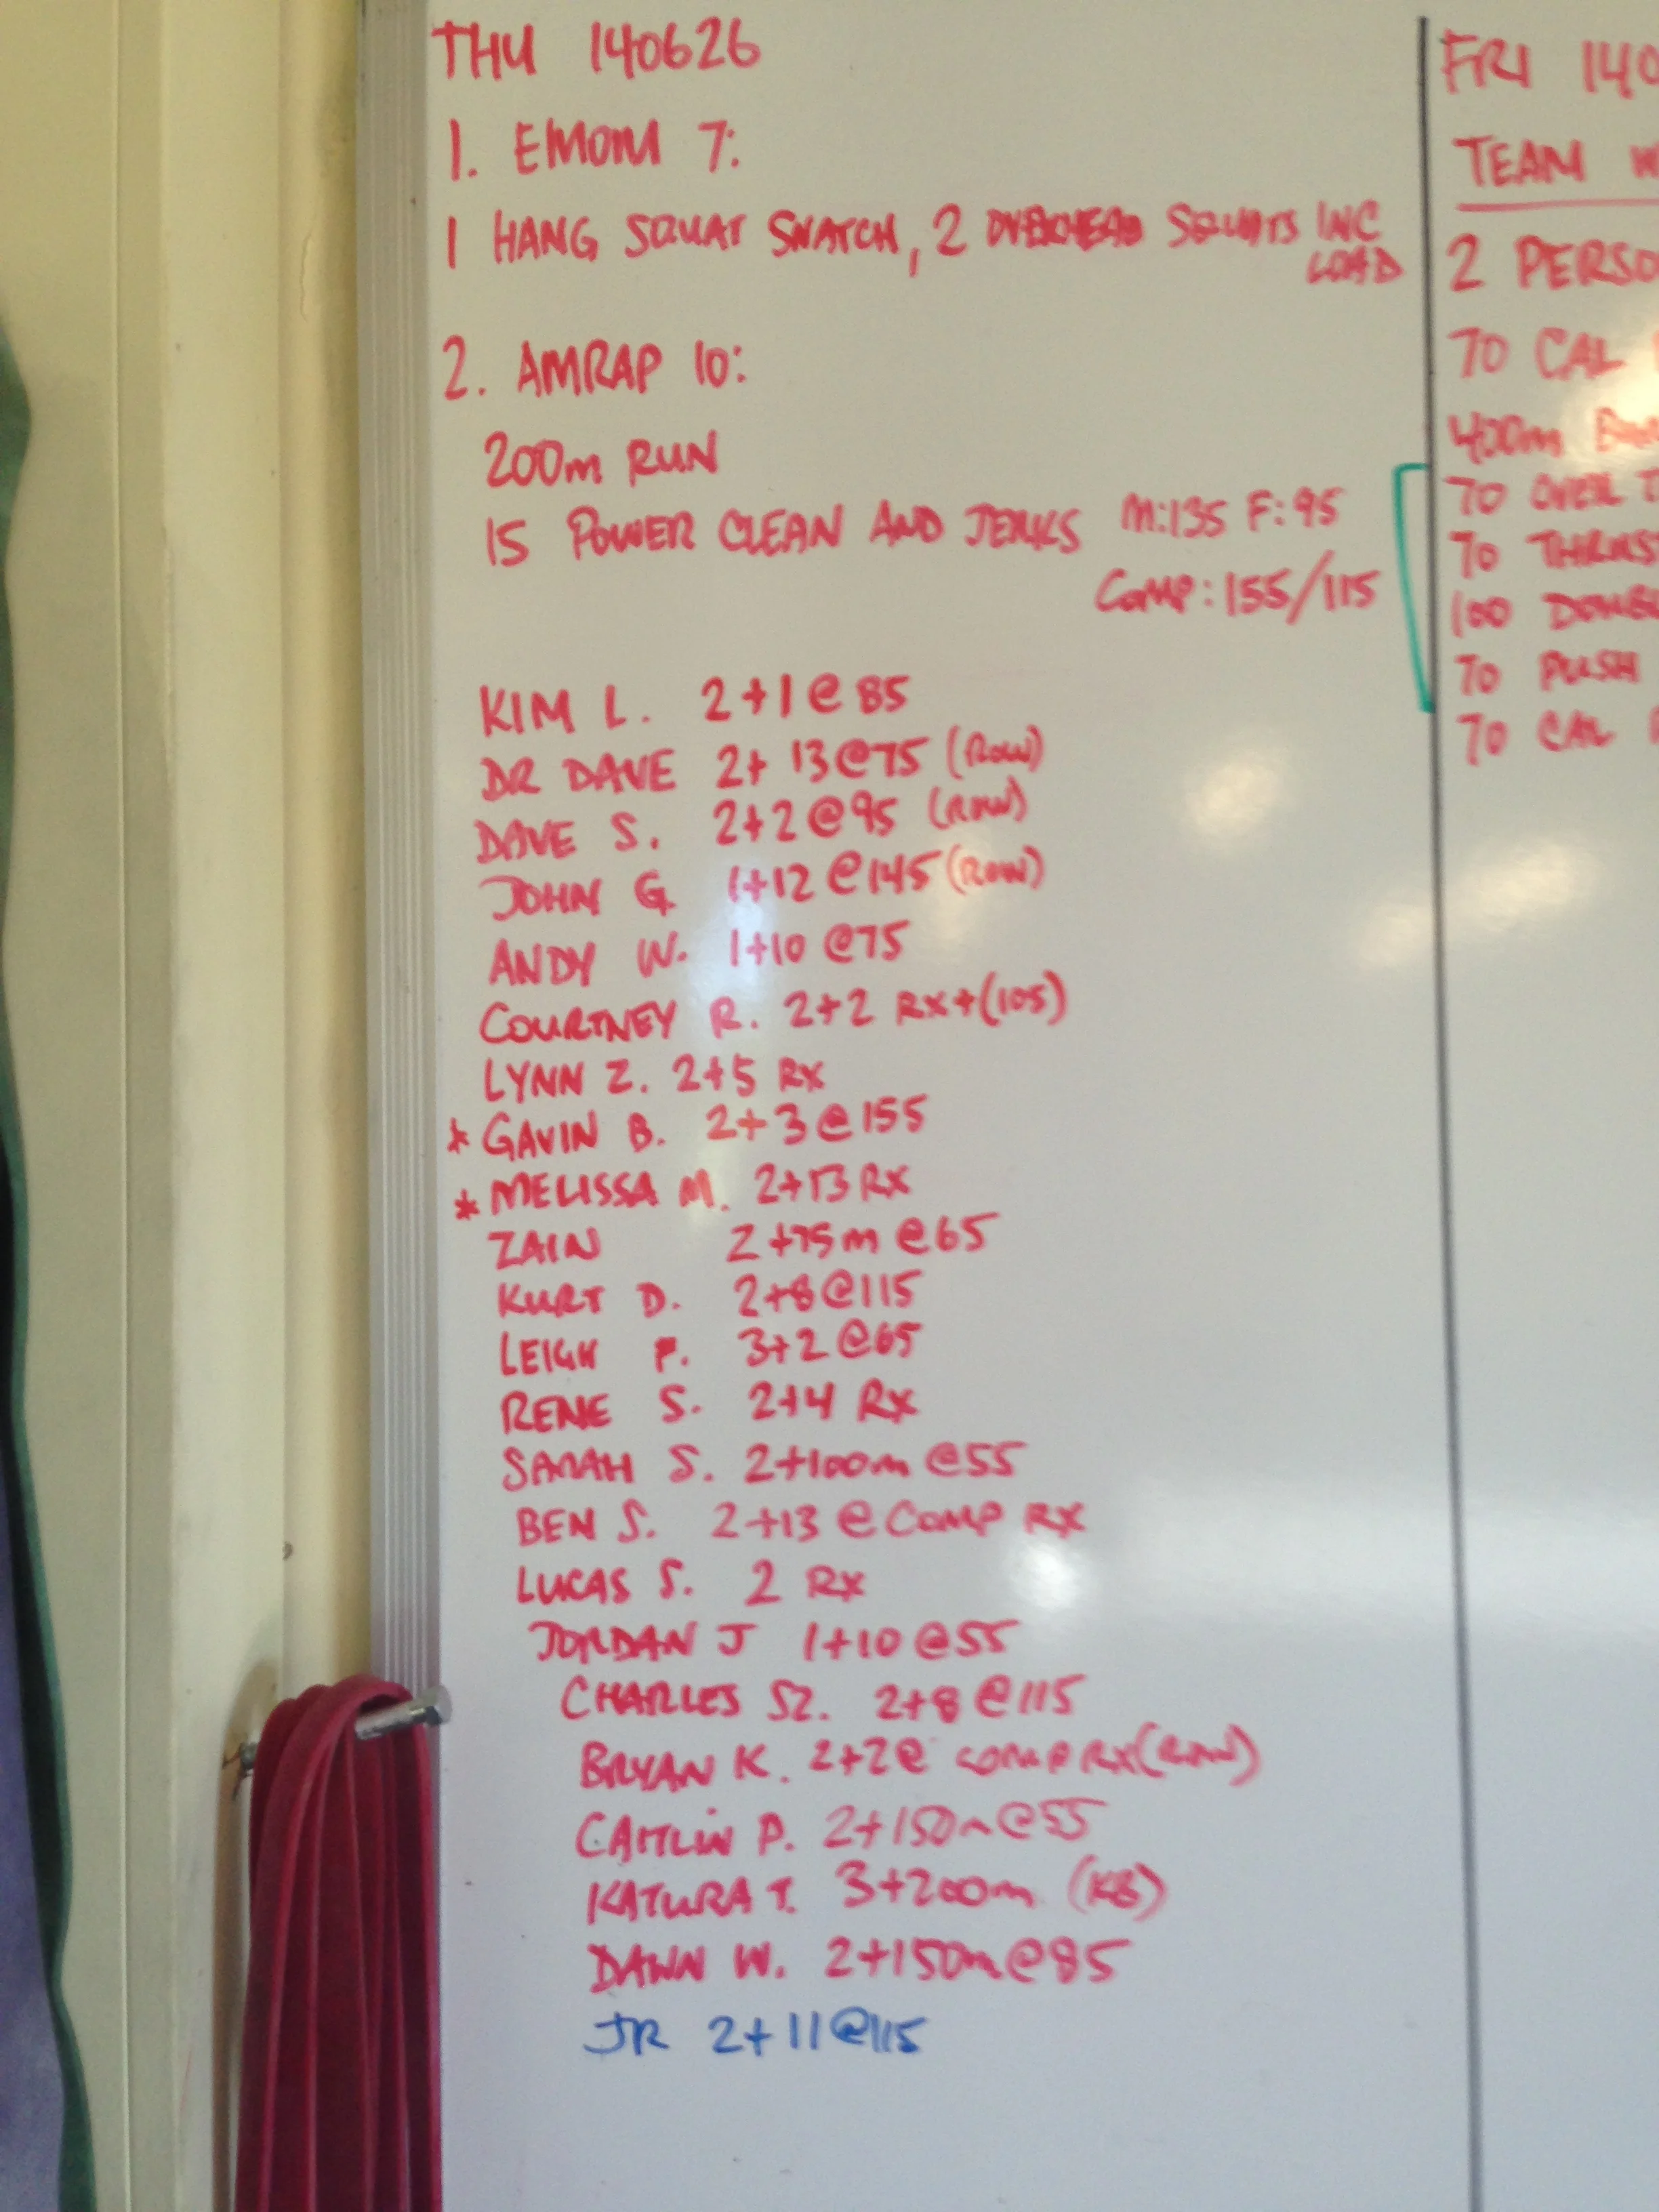 THU 140626
1. EMOM 7:
1 HANG SQUAT SNATCH, 2 OVERHEAD SQUATS INC
LOAD
2. AMRAP 10:
200m RUN
15 POWER CLEAN AND JERKS M:135 F:95
COMP: 155/115
KIM L. 2+1@85
DR DAVE 2+13@75 (ROW)
DAVE S. 2+2@95 (ROW)
JOHN G. 1+12@145 (ROW)
ANDY W. 1+10@75
COURTNEY R. 2+2 RX+(105)
LYNN Z. 2+5 RX
* GAVIN B. 2+3@155
* MELISSA M. 2+13 RX
ZAIN 2+75m@65
KURT D. 2+8@115
LEIGH P. 3+2@65
RENE S. 2+4 RX
SARAH S. 2+100m@55
BEN S. 2+13@COMP RX
LUCAS S. 2 RX
JORDAN J 1+10@55
CHARLES SZ. 2+8@115
BRYAN K. 2+2@ COMP RX (ROW)
CAITLIN P. 2+150m@55
KATURA T. 3+200m (KB)
DAWN W. 2+150m@85
JR 2+11@115
FRI 140
TEAM W
2 PERSO
70 CAL
400m
70 OVER T
70 THRUST
100 DOUBL
70 PUSH
70 CAL